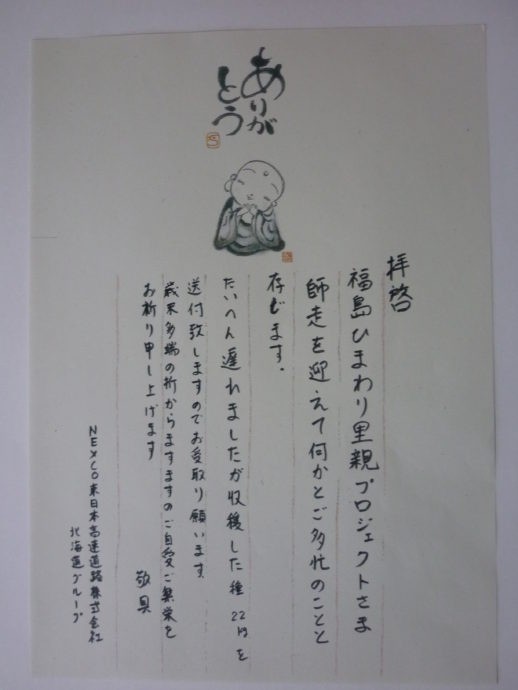 ありが
とう
拝啓
福島ひまわり里親プロジェクトさま
師走を迎えて何かとご多忙のことと
存じます。
たいへん遅れましたが収穫した種22kgを
送付致しますのでお受取り願います。
歳末多端の折からますますのご自愛ご繁栄を
お祈り申し上げます
敬具
NEXCO東日本高速道路株式会社
北海道グループ